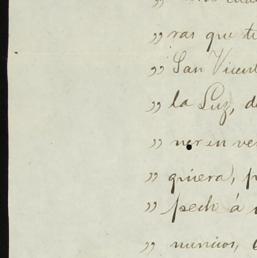 „ ras que ti
„ San Vicent
„ la Luz, d
„ ner en ve
„ quiera, p
„ pech á
„ nuncios,